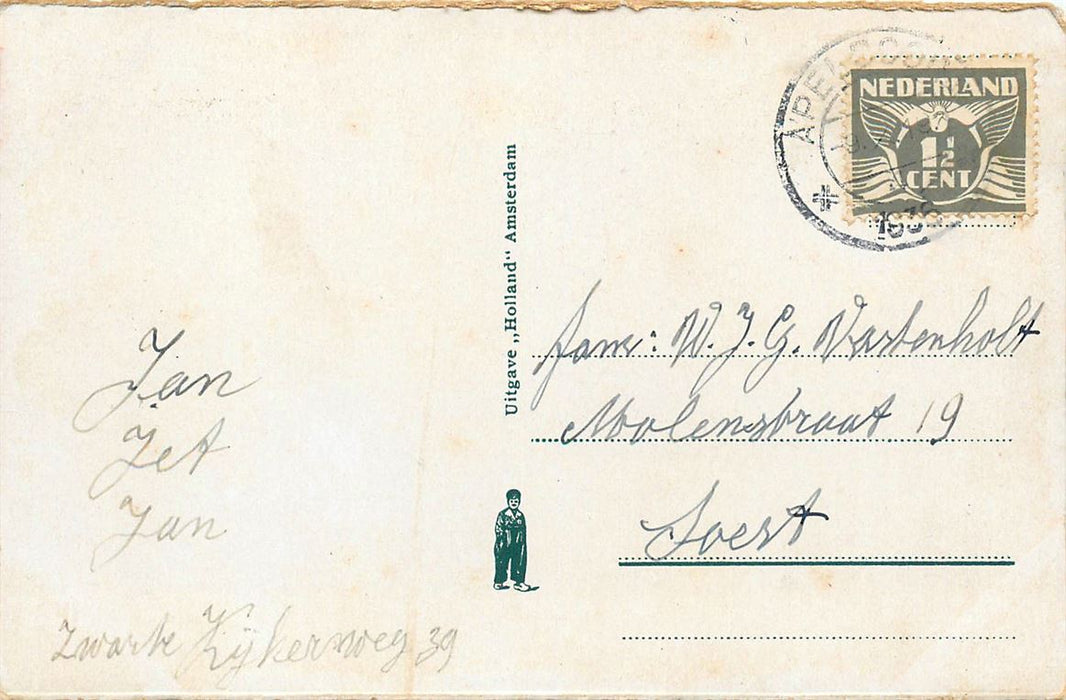 APELDOORN
1936
NEDERLAND
1½
CENT
Uitgave „Holland" Amsterdam
fam: W. J. G. Vastenholt
Molenstraat 19
Soest
Jan
Jet
Jan
Zwarte Kijkerweg 39